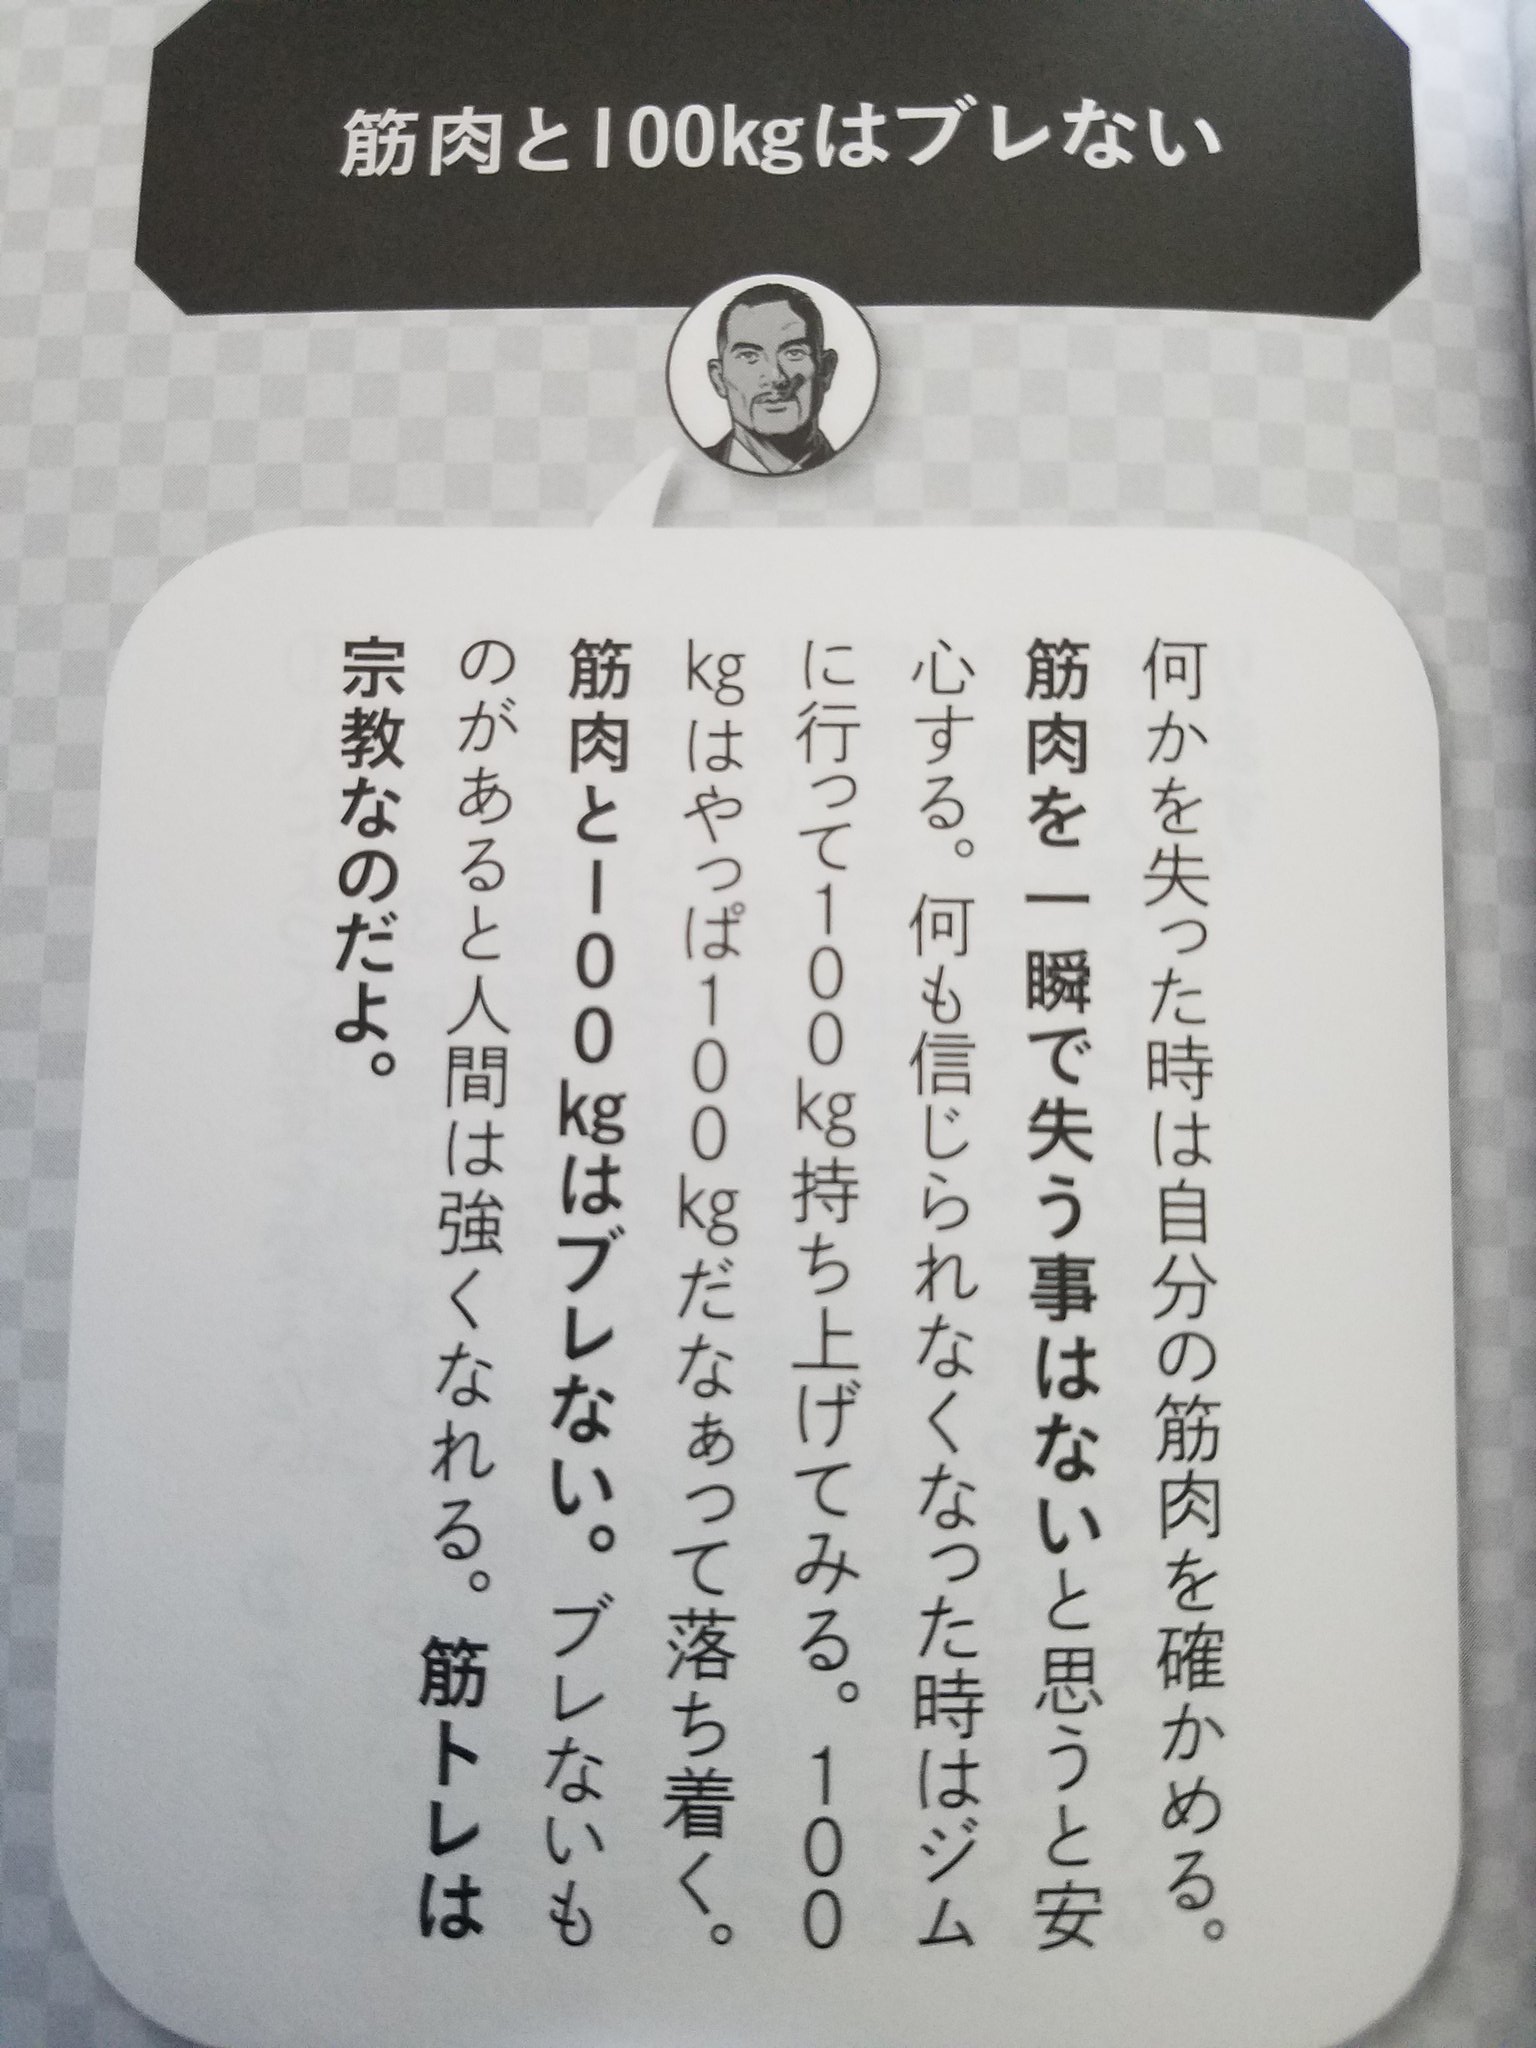 筋肉と100kgはブレない
何かを失った時は自分の筋肉を確かめる。
筋肉を一瞬で失う事はないと思うと安
心する。何も信じられなくなった時はジム
に行って100kg持ち上げてみる。100
kgはやっぱ100kgだなぁって落ち着く。
筋肉と100kgはブレない。ブレないも
のがあると人間は強くなれる。筋トレは
宗教なのだよ。